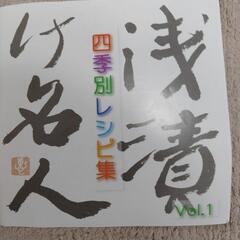 浅漬
け名人
四季別レシピ集
Vol.1